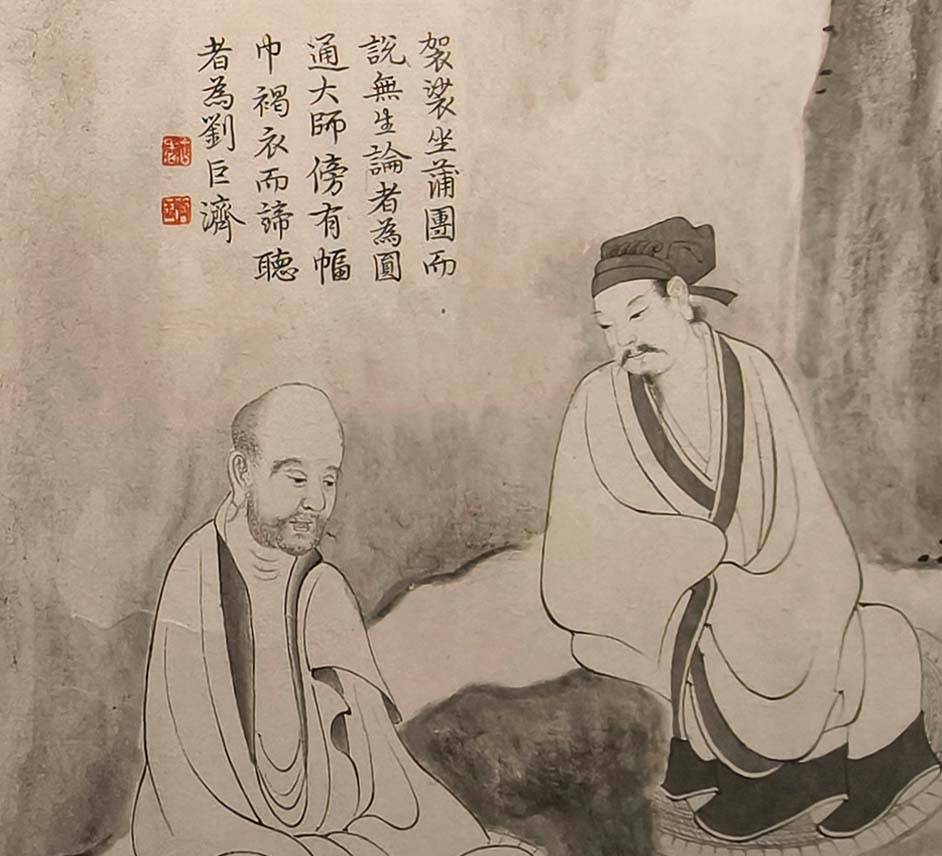 袈裟坐蒲團而
說無生論者為圓
通大師傍有幅
巾褐衣而諦聽
者為劉巨濟